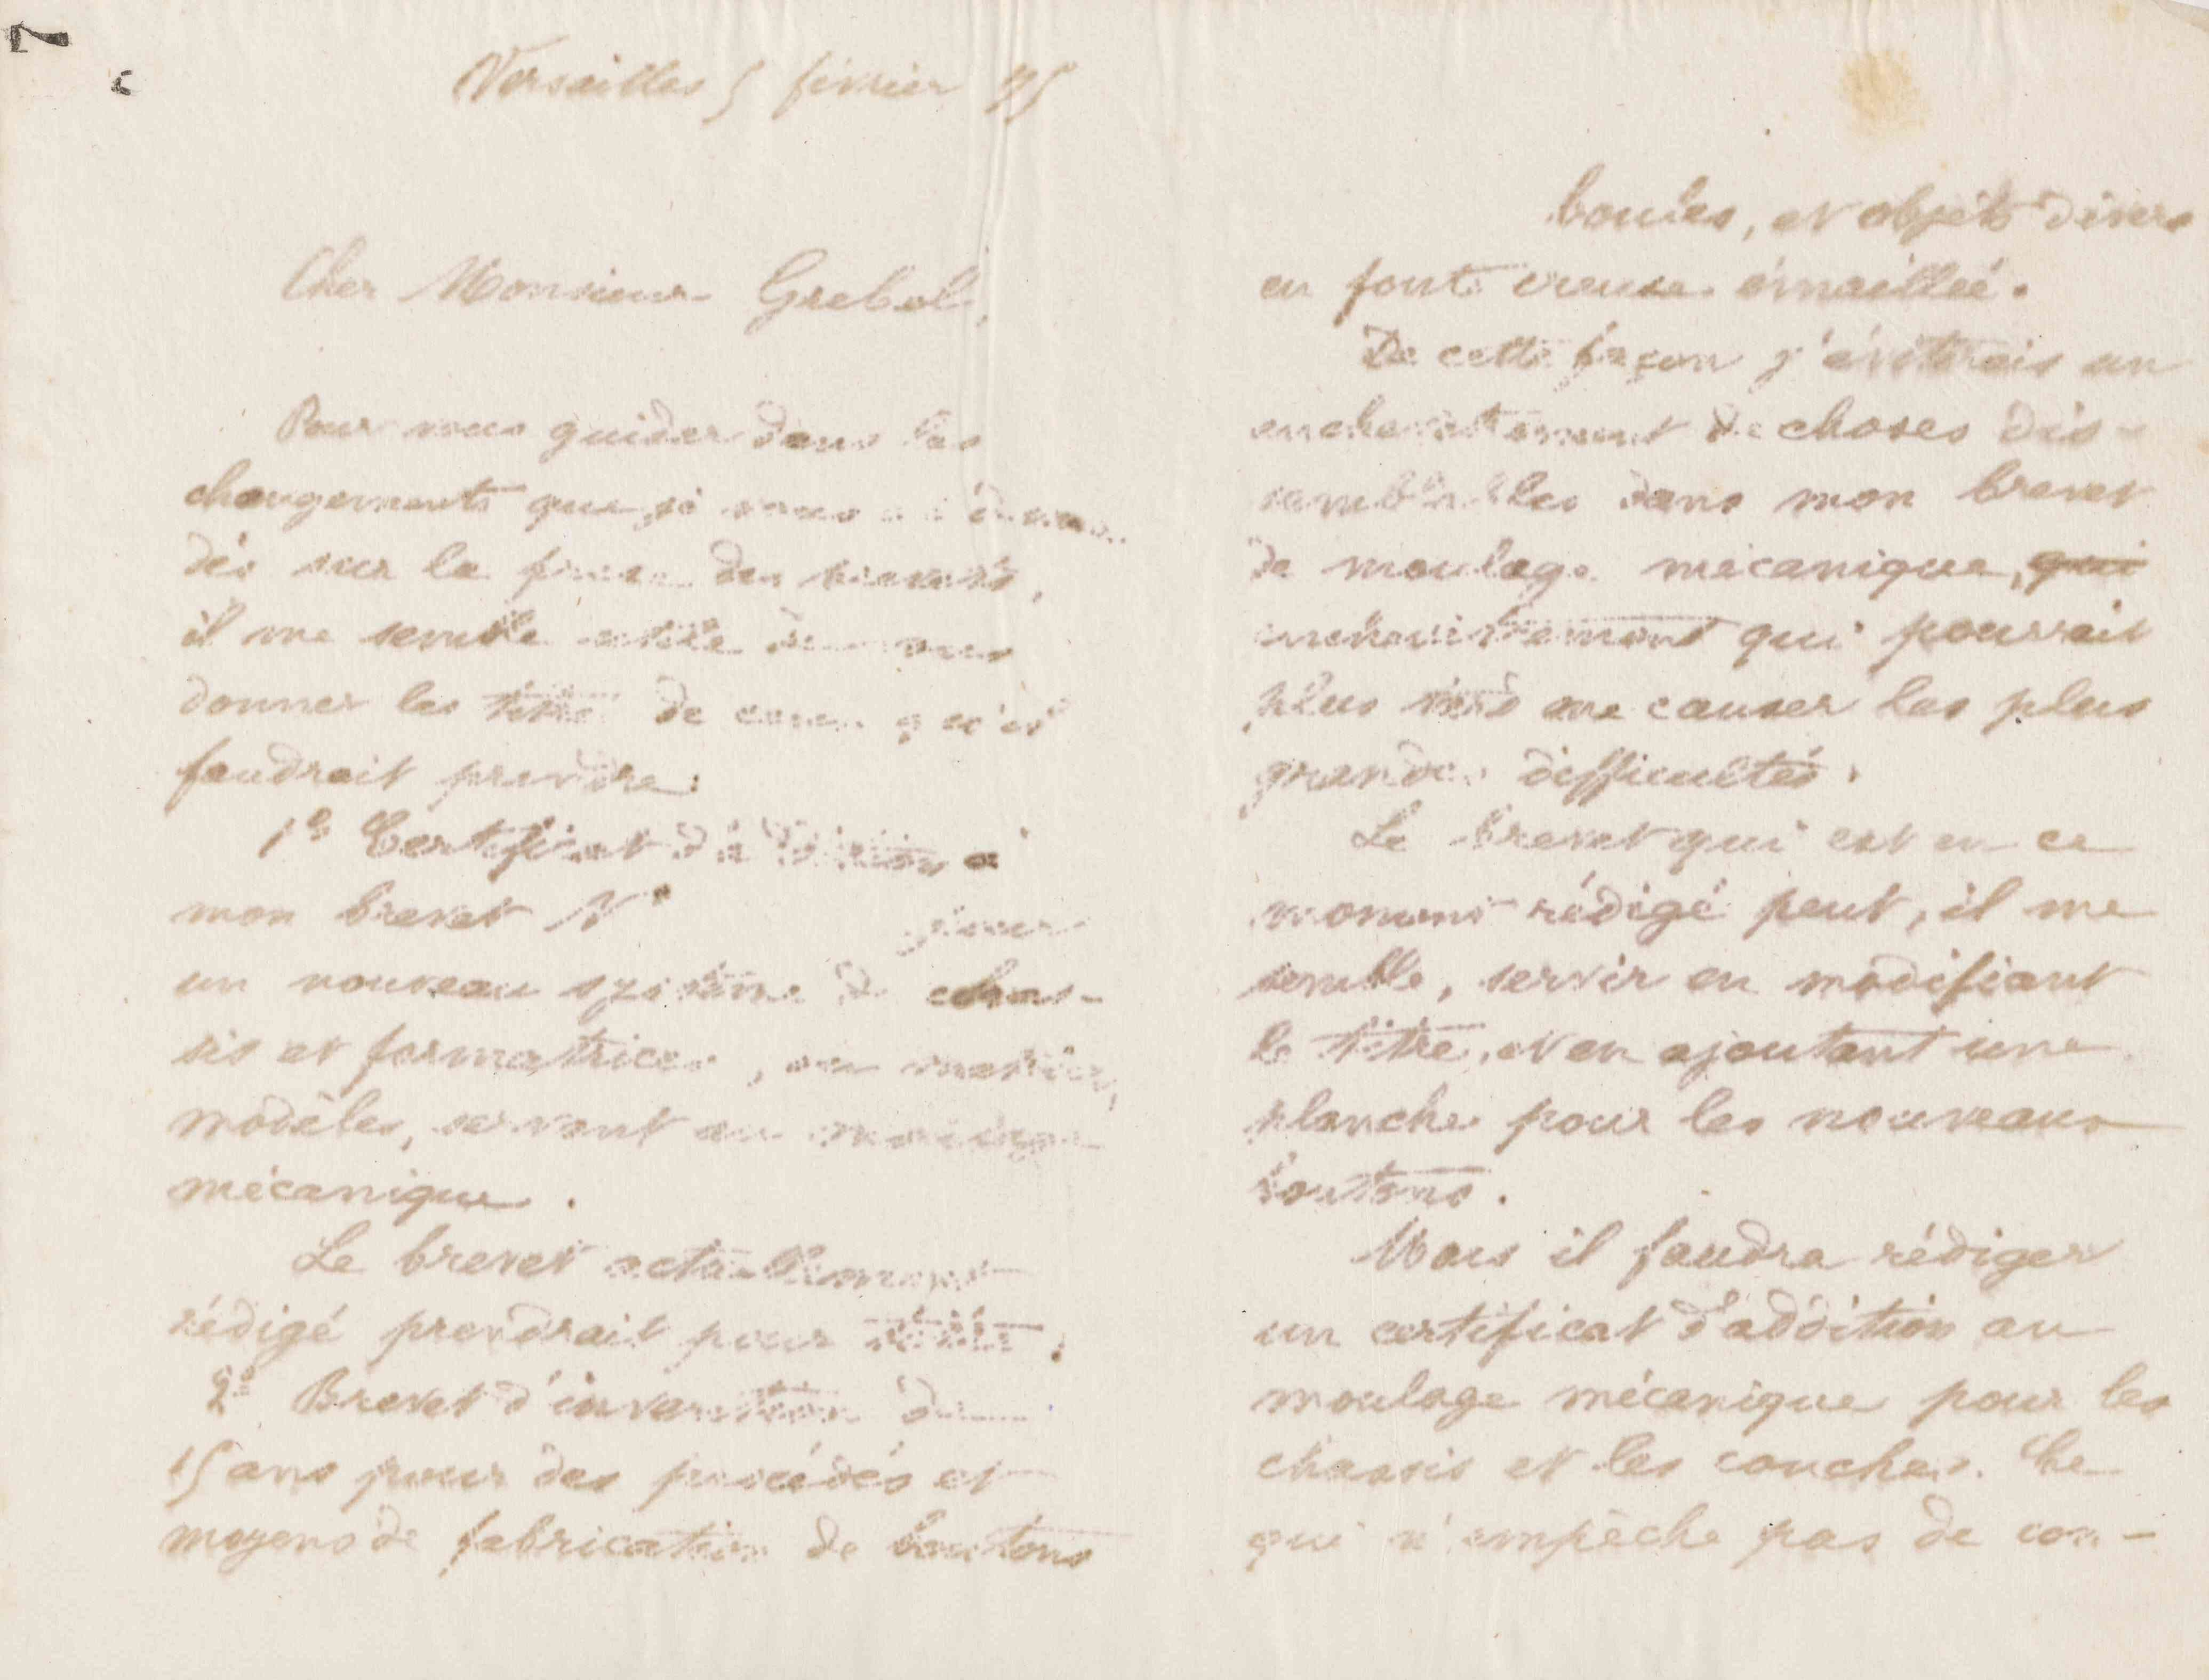 7
Versailles 5 février 95
Cher Monsieur Grebel,
Pour vous guider dans les
changements que je vous ai deman-
dés sur la prise des brevets,
il me semble utile de vous
donner les titres de ceux qu'il
faudrait prendre:
1º Certificat d'addition à
mon brevet Nº pour
un nouveau système de chas-
sis et formatrices, ou
modèles, servant au moulage
mécanique.
Le brevet actuellement
rédigé prendrait pour titre:
2º Brevet d'invention de
15 ans pour des procédés et
moyens de fabrication de boutons
boules, et objets divers
en fonte creuse émaillée.
De cette façon j'éviterais un
enchevêtrement de choses dis-
semblables dans mon brevet
de moulage mécanique, qui
enchevêtrement qui pourrait
plus tard me causer les plus
grandes difficultés.
Le brevet qui est en ce
moment rédigé peut, il me
semble, servir en modifiant
le titre, et en ajoutant une
planche pour les nouveaux
boutons.
Mais il faudra rédiger
un certificat d'addition au
moulage mécanique pour les
chassis et les couches. Ce
qui n'empêche pas de con-